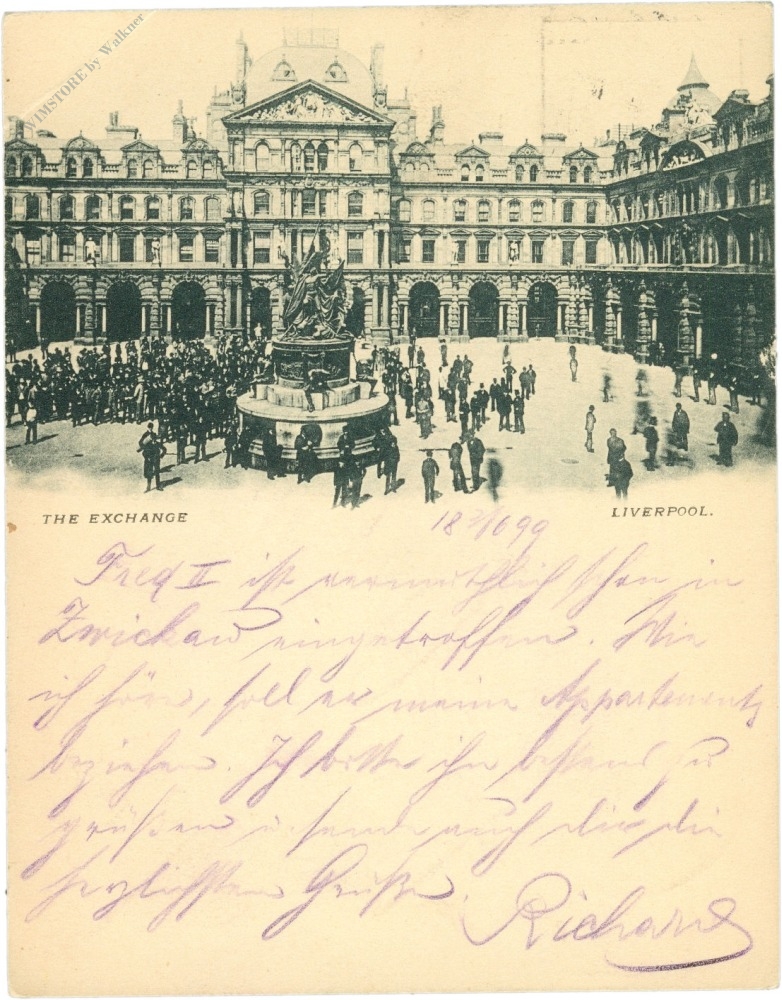 VIMSTORE by Walkner
THE EXCHANGE
LIVERPOOL.
18 2/6 99
Fred II ist vermuthlich schon in
Zwickau eingetroffen. Wie
ich höre, soll er meine Appartements
beziehen. Ich bitte ihn bestens zu
grüßen u. sende auch dir die
herzlichsten Grüße.
Richard